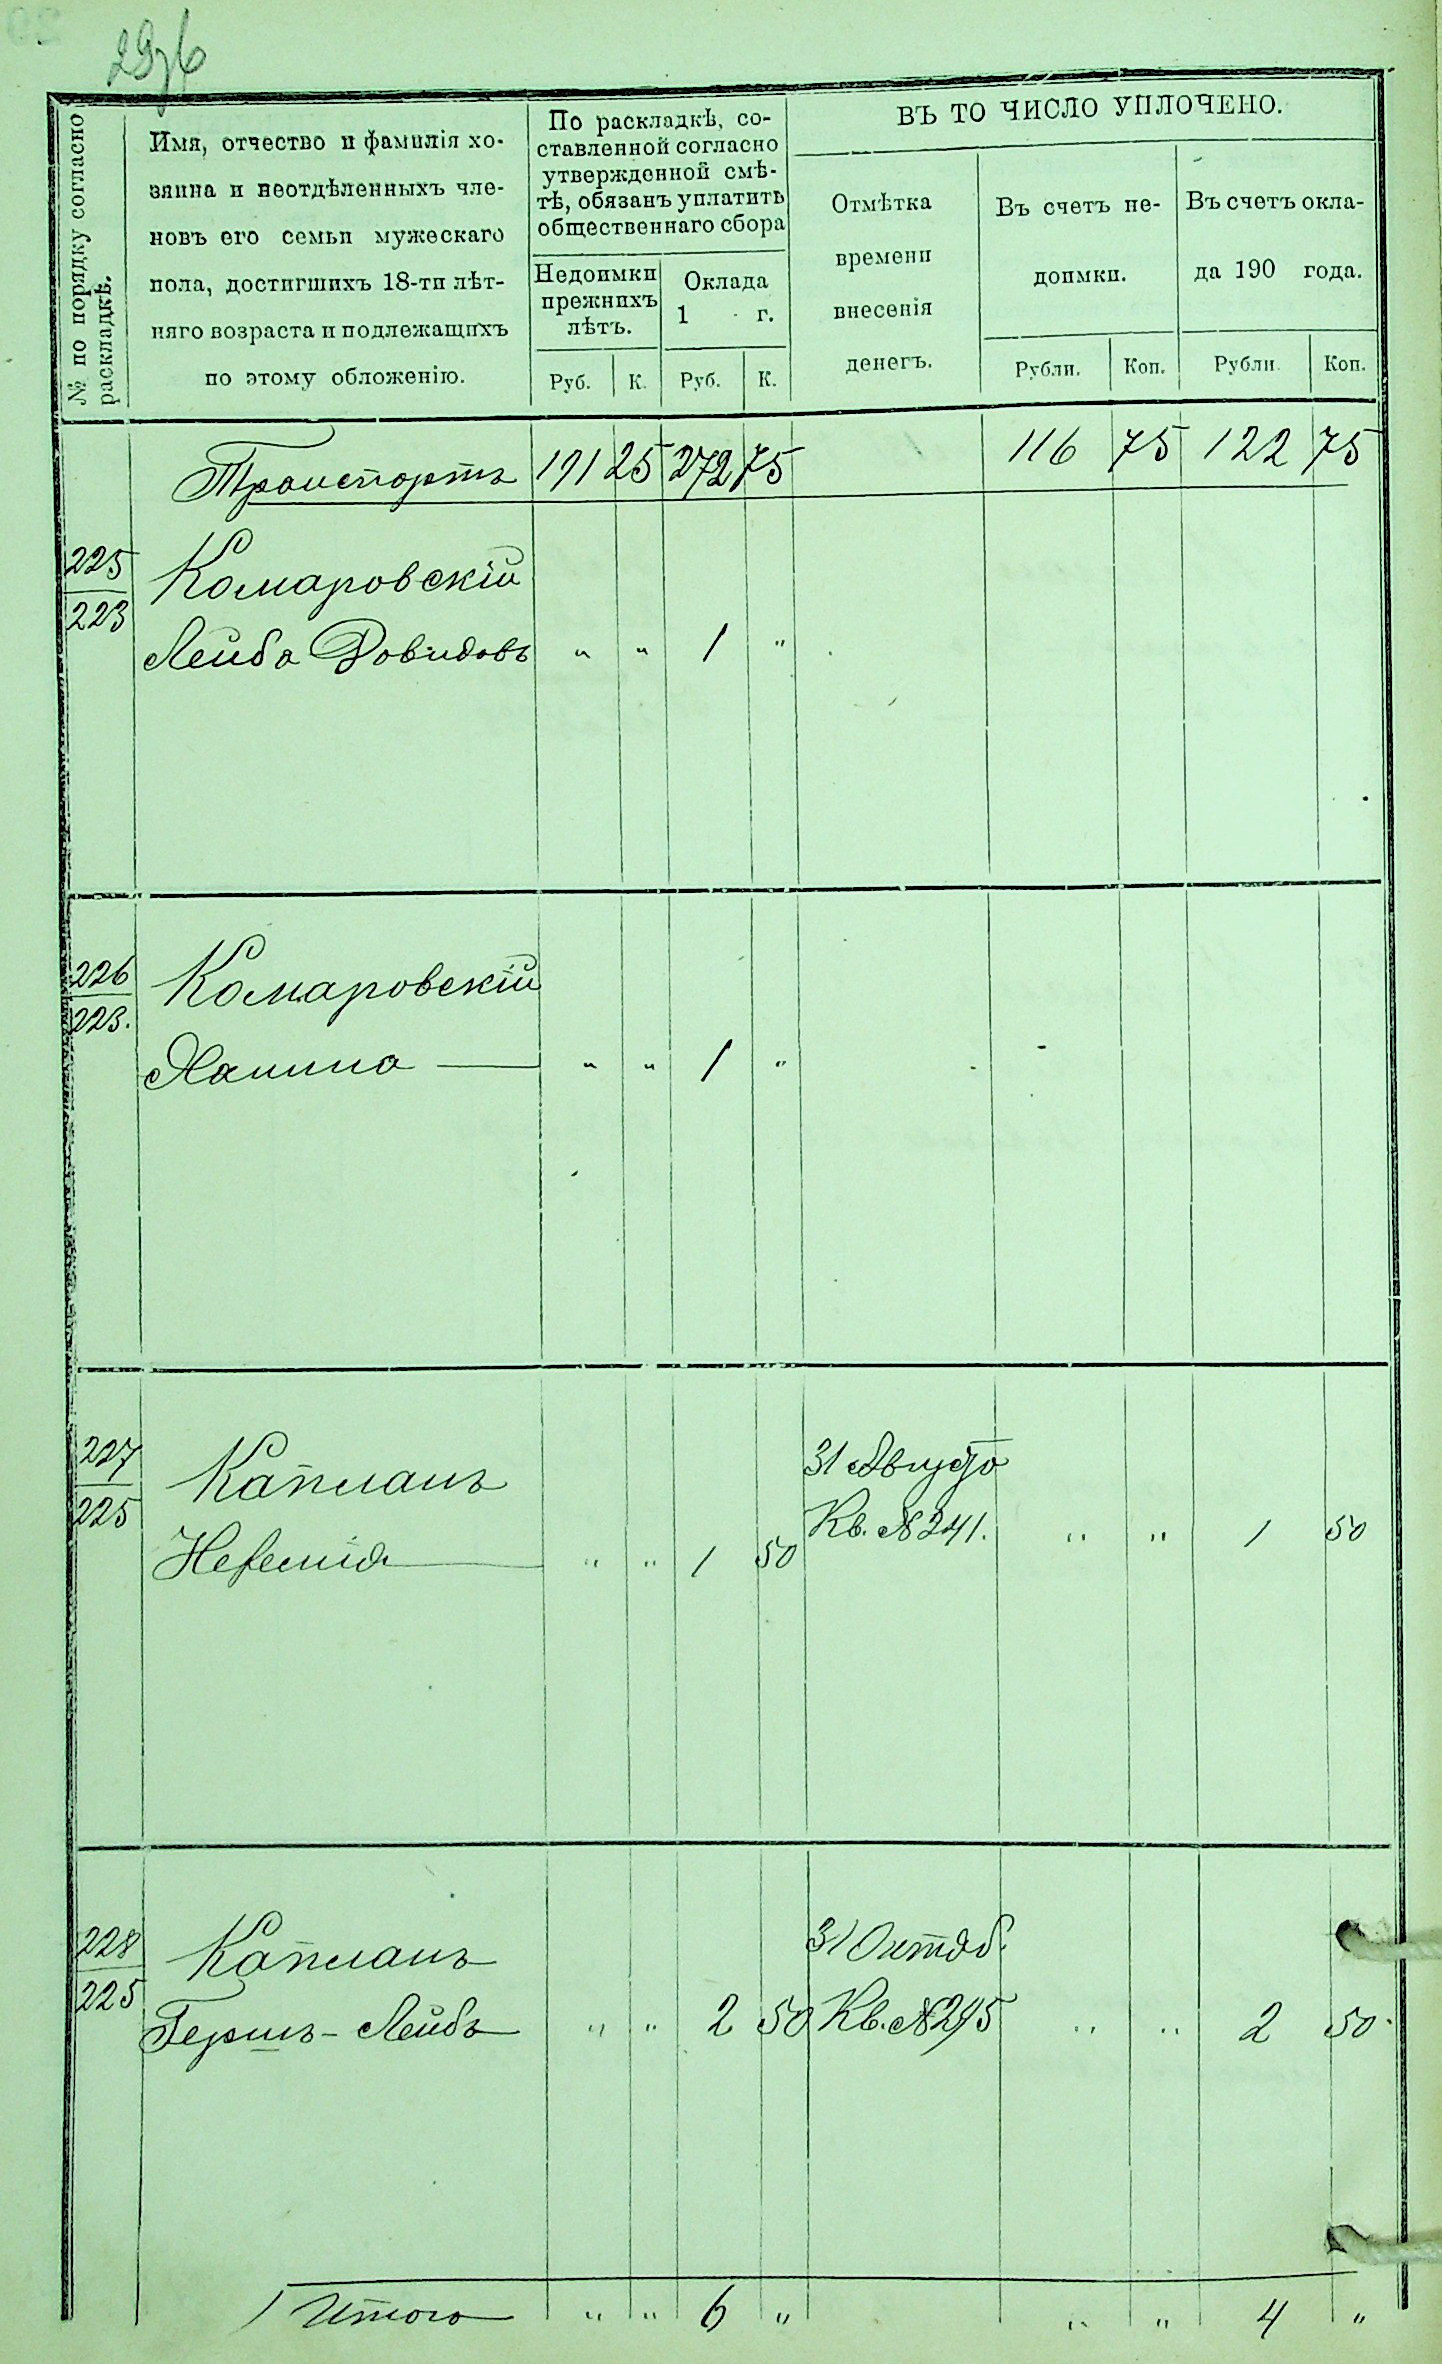 29об
№ по порядку согласно
раскладкѣ.
Имя, отчество и фамилія хо-
зяина и неотдѣленныхъ чле-
новъ его семьи мужескаго
пола, достигшихъ 18-ти лѣт-
няго возраста и подлежащихъ
по этому обложенію.
По раскладкѣ, со-
ставленной согласно
утвержденной смѣ-
тѣ, обязанъ уплатить
общественнаго сбора
Недоимки
прежнихъ
лѣтъ.
Оклада
1 г.
Руб. К. Руб. К.
ВЪ ТО ЧИСЛО УПЛОЧЕНО.
Отмѣтка
времени
внесенія
денегъ.
Въ счетъ не-
доимки.
Въ счетъ окла-
да 190 года.
Рубли. Коп. Рубли. Коп.
Транспортъ 191 25 272 75 116 75 122 75
225
223
Комаровскій
Лейба Довидовъ " " 1 "
226
223.
Комаровскій
Ханина — " " 1 "
227
225
Капланъ
Нехемія — " " 1 50
31 Августа
Кв. № 241. " " 1 50
228
225
Капланъ
Гершъ-Лейбъ " " 2 50
31 Октяб.
Кв. № 295 " " 2 50
Итого " " 6 " " " 4 "